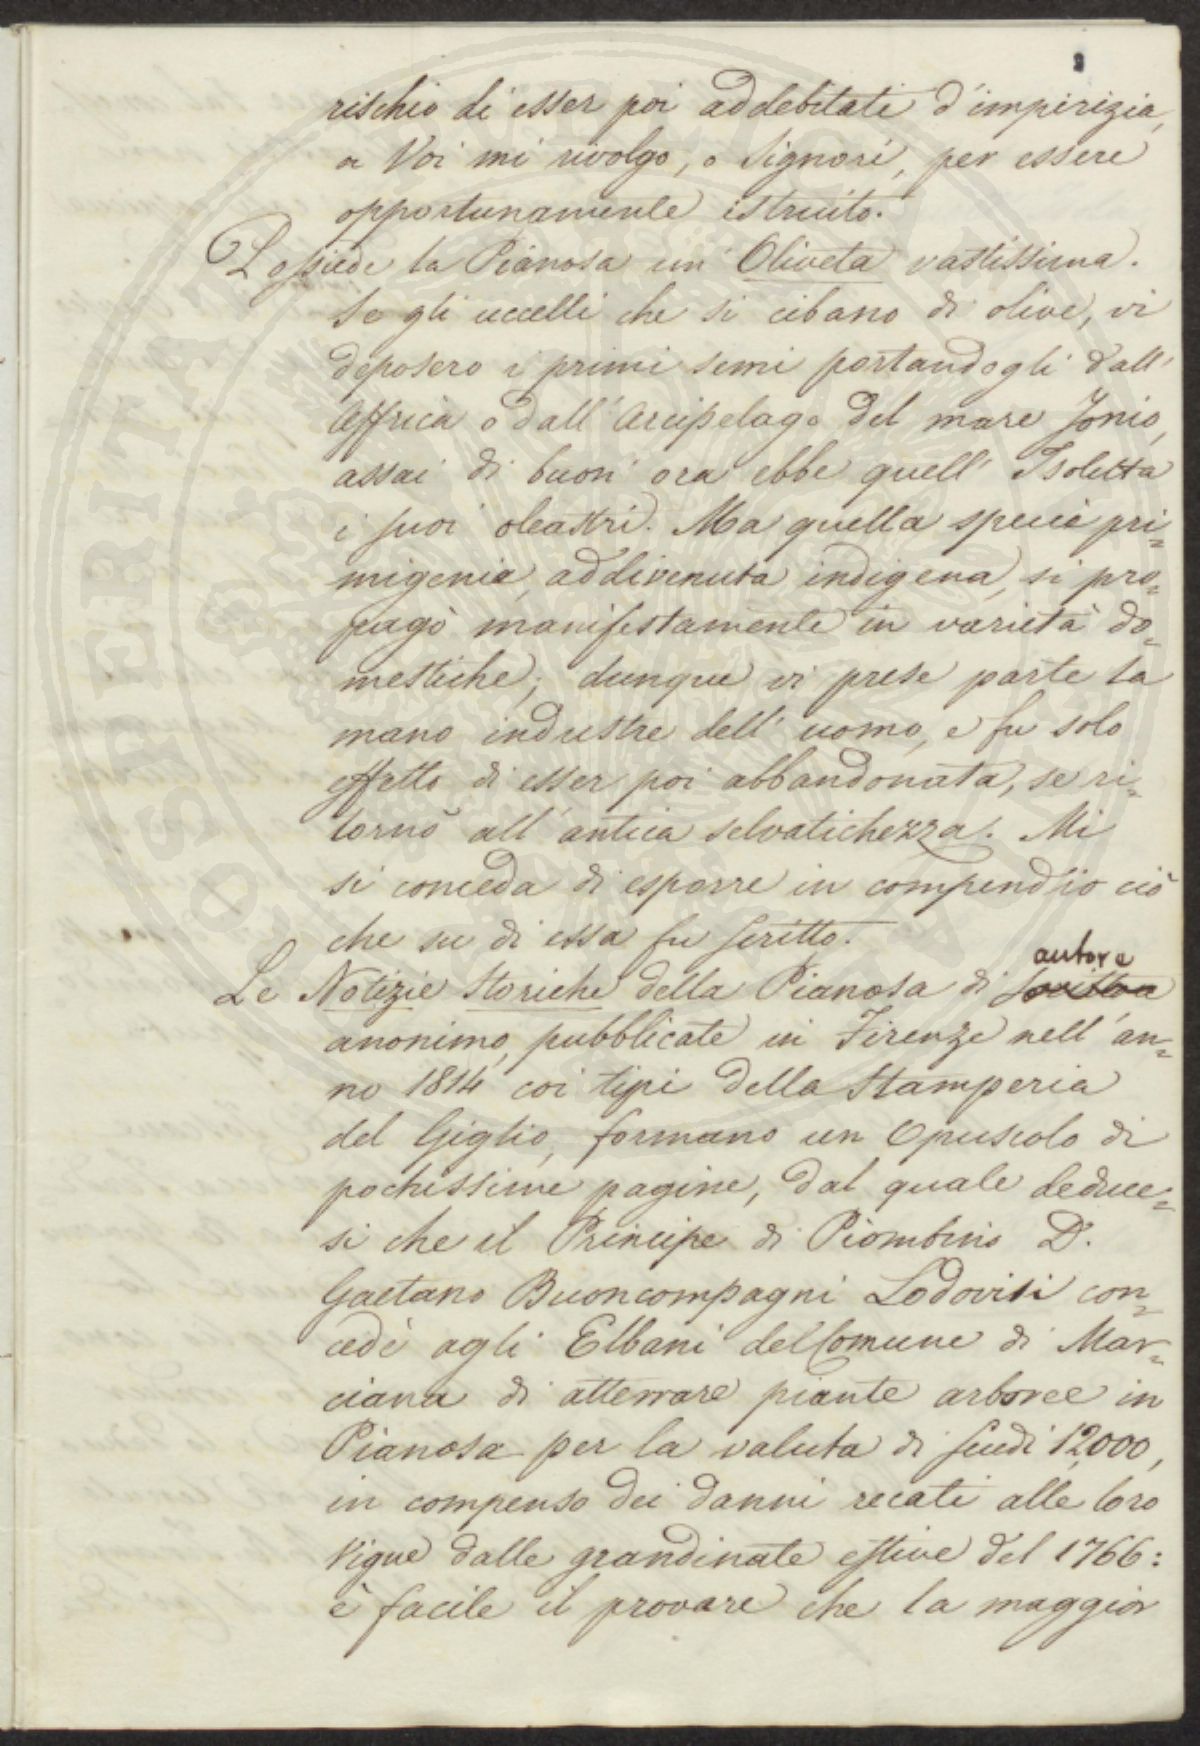 rischio di esser poi addebitati d'imperizia,
a Voi mi rivolgo, o Signori, per essere
opportunamente istruito.
Possiede la Pianosa un' Oliveta vastissima.
Se gli uccelli che si cibano di olive, vi
deposero i primi semi portandogli dall'
Affrica o dall' Arcipelago del mare Jonio,
assai di buon' ora ebbe quell' Isoletta
i suoi oleastri. Ma quella specie pri=
migenia, addivenuta indigena, si pro=
pagò manifestamente in varietà do=
mestiche; dunque vi prese parte la
mano industre dell' uomo, e fu solo
effetto di esser poi abbandonata, se ri=
tornò all' antica selvatichezza. Mi
si conceda di esporre in compendio ciò
che su di essa fu scritto.
autore
Le Notizie Storiche della Pianosa di
anonimo, pubblicate in Firenze nell' an=
no 1814 coi tipi della Stamperia
del Giglio, formano un Opuscolo di
pochissime pagine, dal quale deduce=
si che il Principe di Piombino D.
Gaetano Buoncompagni Lodovisi con=
cedè agli Elbani del Comune di Mar=
ciana di atterrare piante arboree in
Pianosa per la valuta di scudi 12,000,
in compenso dei danni recati alle loro
vigne dalle grandinate estive del 1766:
è facile il provare che la maggior
PROSPERITATI
PUBLICAE